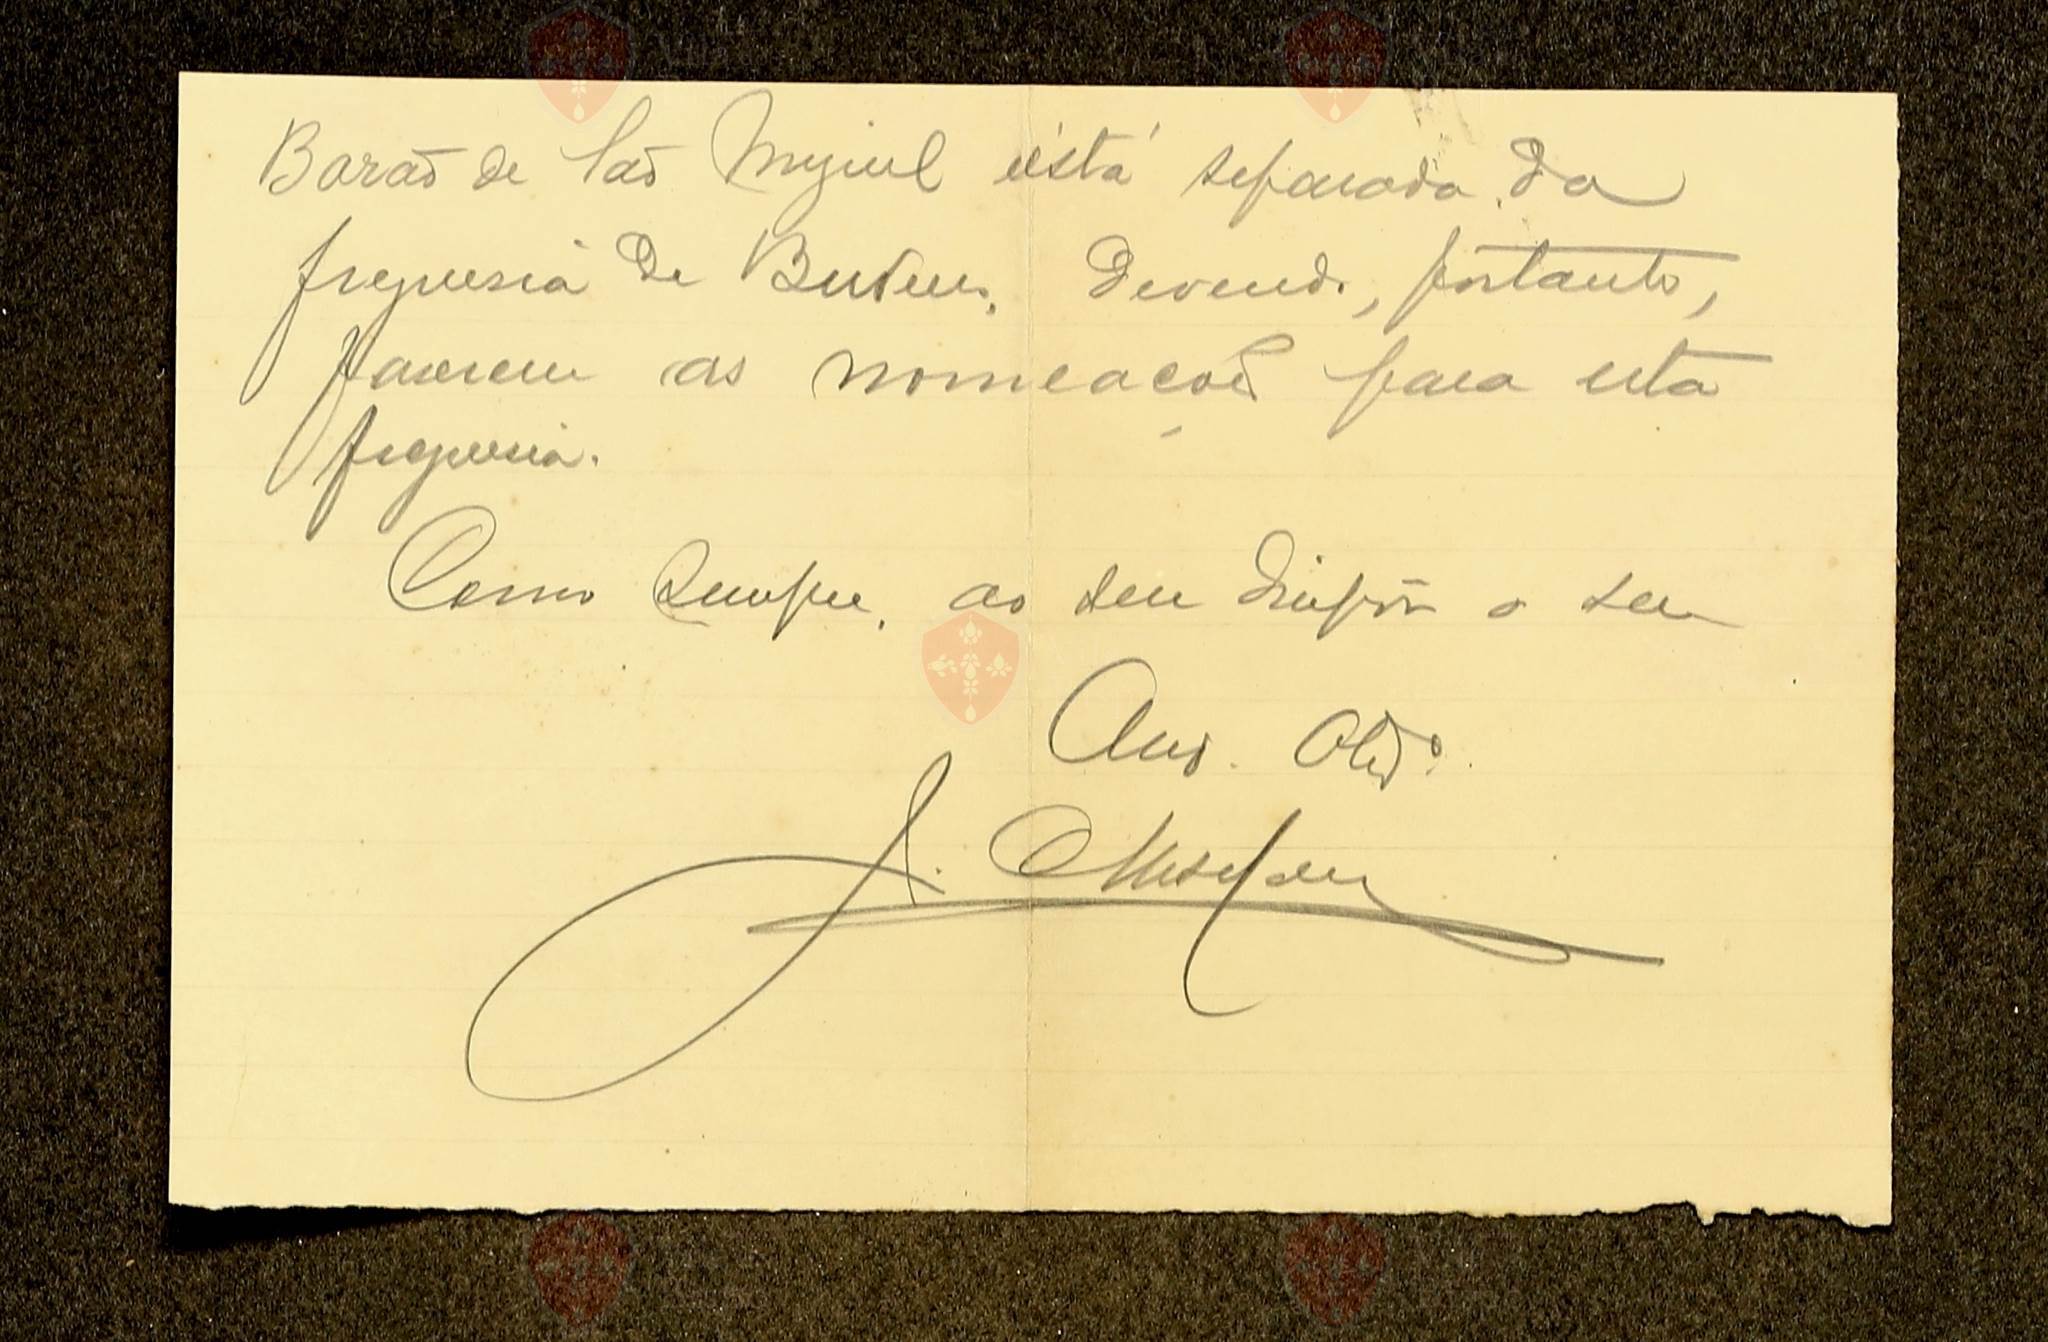 Barão de São Miguel está separada da
freguesia de Budens, devendo, portanto,
fazerem as nomeações para esta
freguesia.
Como sempre, ao seu dispôr o seu
Amº. Obdº.
J.